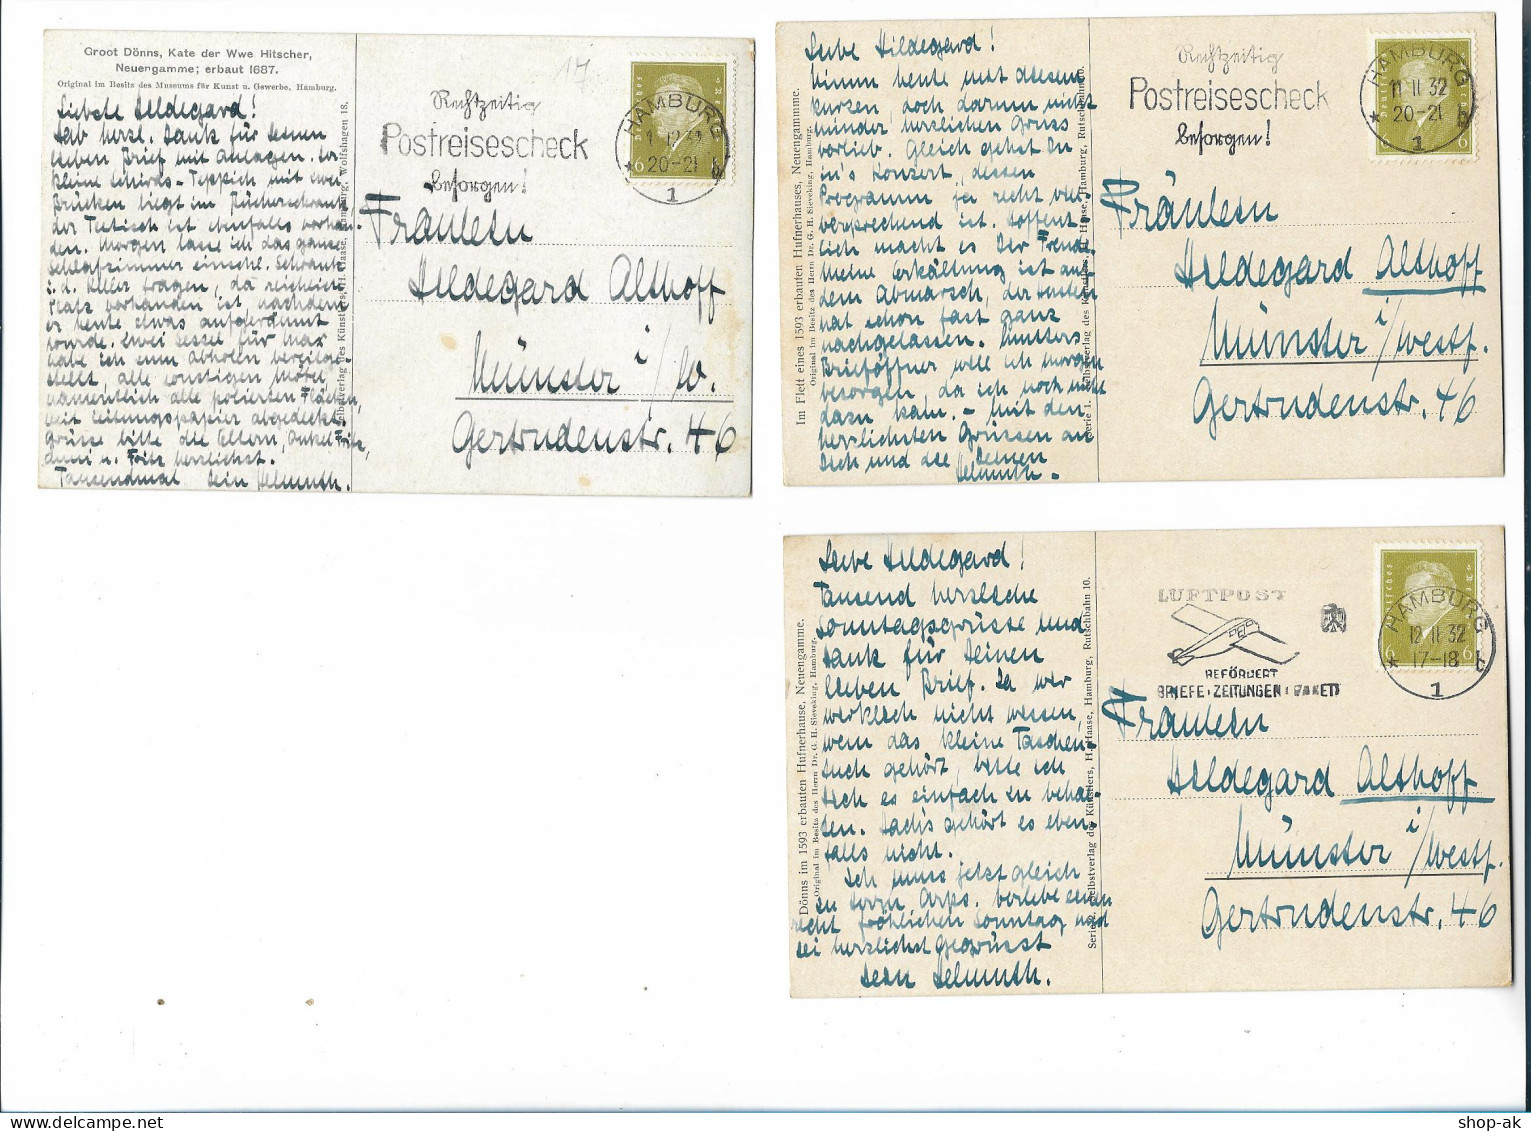 Groot Dönns, Kate der Wwe Hitscher,
Neuengamme; erbaut 1687.
Original im Besitz des Museums für Kunst u. Gewerbe, Hamburg.
Liebste Hildegard!
Hab herzl. Dank für Deinen
lieben Brief mit Anlagen.
kleine Schirās-Teppich mit zwei
Brücken liegt im Bücherschrank,
der Teetisch ist ebenfalls vorhan-
den. Morgen lasse ich das ganze
Schlafzimmer einschl. Schrank
i. d. Keller tragen, da reichlich
Platz vorhanden ist nachdem
er heute etwas aufgeräumt
wurde. Zwei Sessel für Max
habe ich zum Abholen bereitge-
stellt, alle sonstigen Möbel,
namentlich alle polierten Flächen,
mit Zeitungspapier abgedeckt.
Grüsse bitte die Eltern, Onkel Fritz,
u. Fritz herzlichst.
Tausendmal Dein Helmuth.
Selbstverlag des Künstlers, H. Haase, Hamburg, Wolfshagen 18.
17
Rechtzeitig
Postreisescheck
besorgen!
HAMBURG
1.12.32
20-21
1
6
Fräulein
Hildegard Althoff
Münster i/W.
Gertrudenstr. 46
Liebe Hildegard!
Nimm heute mit diesem
kurzen, doch darum nicht
minder herzlichen Gruss
vorlieb. Gleich geht es
in's Konzert, dessen
Programm ja recht viel
versprechend ist. Hoffent
lich macht es Dir Freude.
Meine Erkältung ist auf
dem Abmarsch, der Husten
hat schon fast ganz
nachgelassen. Mutters
Brieföffner will ich morgen
besorgen, da ich noch nicht
dazu kam. - Mit den
herzlichsten Grüssen an
Dich und die Deinen
Helmuth -
Im Flett eines 1593 erbauten Hufnerhauses, Neuengamme.
Original im Besitz des Herrn Dr. G. H. Sieveking, Hamburg.
Serie 1. Selbstverlag des Künstlers, H. Haase, Hamburg, Rutschbahn 10.
Rechtzeitig
Postreisescheck
besorgen!
HAMBURG
11 11 32
20-21
1
6
Fräulein
Hildegard Althoff
Münster i/Westf.
Gertrudenstr. 46
Liebe Hildegard!
Tausend herzliche
Sonntagsgrüsse und
Dank für Deinen
lieben Brief. Da wir
wirklich nicht wissen,
wem das kleine Taschen-
tuch gehört, bitte ich
Dich es einfach zu behal-
ten. Dach's gehört es eben-
falls nicht.
Ich muss jetzt gleich
zu Arps. Verlebe einen
recht fröhlichen Sonntag und
sei herzlichst gegrüsst
Dein Helmuth.
Dönns im 1593 erbauten Hufnerhause, Neuengamme.
Original im Besitz des Herrn Dr. G. H. Sieveking, Hamburg.
Selbstverlag des Künstlers, H. Haase, Hamburg, Rutschbahn 10.
LUFTPOST
BEFÖRDERT
BRIEFE·ZEITUNGEN·PAKETE
HAMBURG
12 11 32
17-18
1
6
Fräulein
Hildegard Althoff
Münster i/Westf.
Gertrudenstr. 46
shop-ak